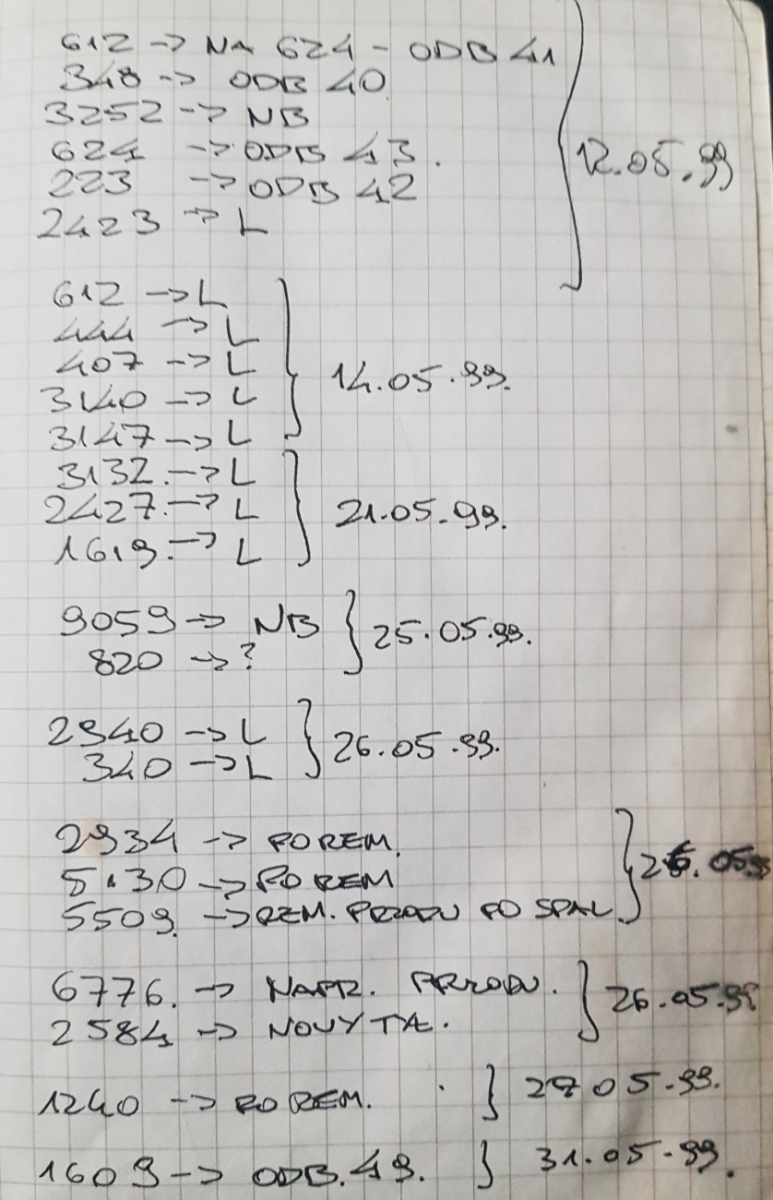 612 -> NA 624 - ODB 41
348 -> ODB 40
3252 -> NB
624 -> ODB 43.
223 -> ODB 42
2423 -> L
12.05.99
612 -> L
444 -> L
407 -> L
3140 -> L
3147 -> L
14.05.99.
3132. -> L
2427. -> L
1619. -> L
21.05.99.
9059 -> NB
820 -> ?
25.05.99.
2940 -> L
340 -> L
26.05.99.
2934 -> PO REM.
5130 -> PO REM
5509. -> REM. PRZODU PO SPAL
05.99
6776. -> NAPR. PRZODU.
2584 -> NOWY TYŁ.
26.05.99
1240 -> PO REM.
05.99.
1609 -> ODB. 49.
31.05.99.